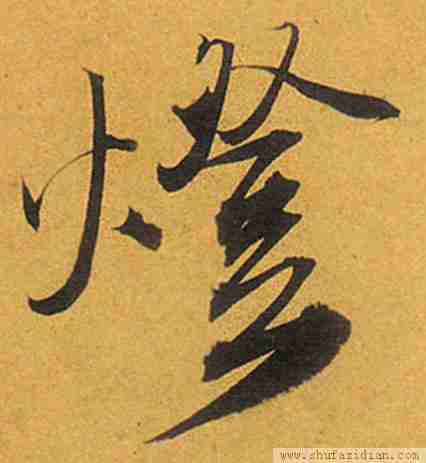 燈
www.shufazidian.com